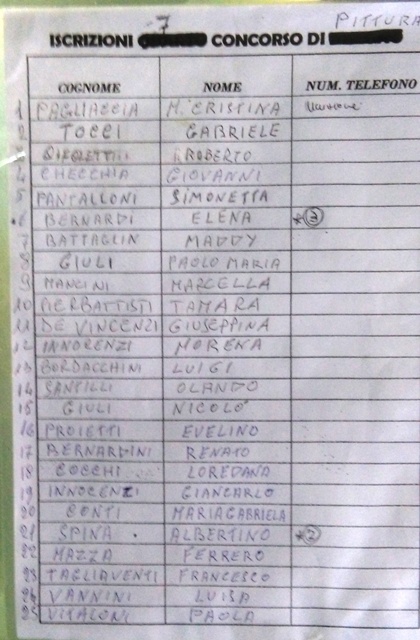 7 PITTURA
ISCRIZIONI CONCORSO DI
COGNOME NOME NUM. TELEFONO
1 PAGLIACCIA M. CRISTINA
2 TOCCI GABRIELE
3 ROBERTO
4 CHECCHIA GIOVANNI
5 PANTALLONI SIMONETTA
6 BERNARDI ELENA *3
7 BATTAGLIN MADDY
8 GIULI PAOLO MARIA
9 MANCINI MARCELLA
10 PIERBATTISTI TAMARA
11 DE VINCENZI GIUSEPPINA
12 INNORENZI MORENA
13 BORDACCHINI LUIGI
14 SANTILLI OLANDO
15 GIULI NICOLO'
16 PROIETTI EVELINO
17 BERNARDINI RENATO
18 COCCHI LOREDANA
19 INNOCENZI GIANCARLO
20 CONTI MARIAGABRIELA
21 SPINA ALBERTINO *2
22 MAZZA FERRERO
23 TAGLIAVENTI FRANCESCO
24 VANNINI LUISA
25 VITALONI PAOLA